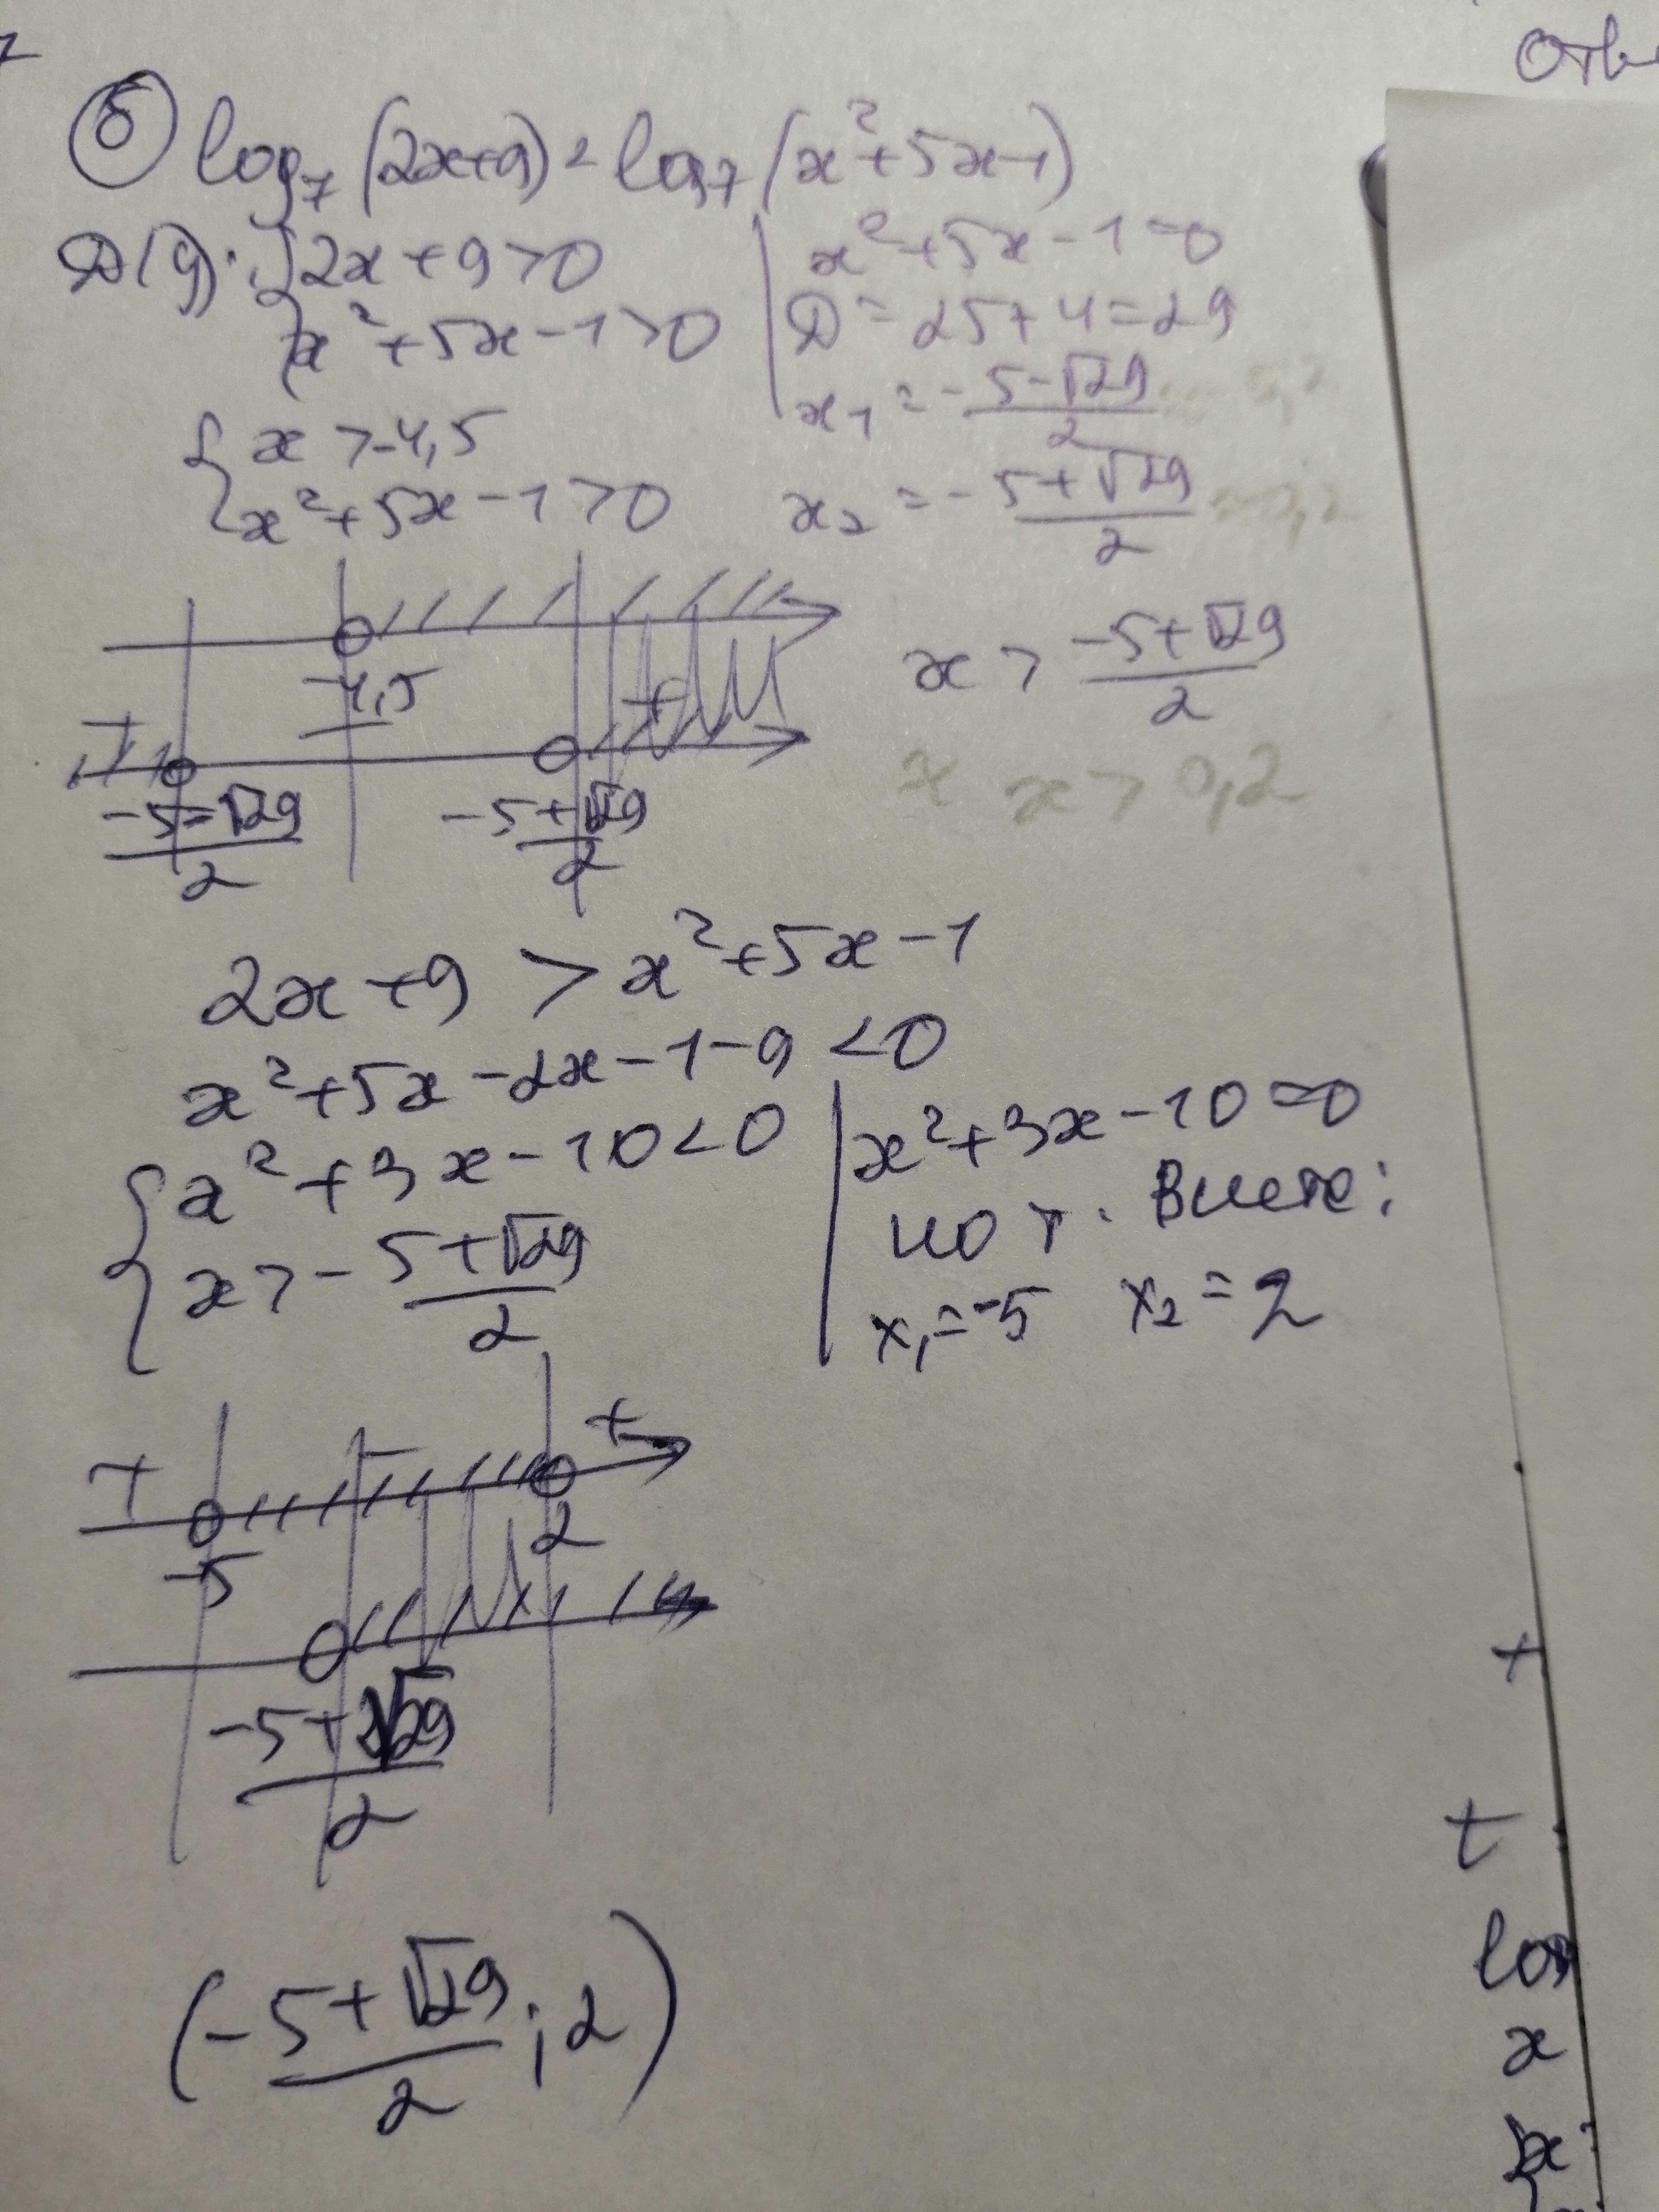 Отв
⑧ log₇(2x+9) < log₇(x²+5x-1)
D(y): { 2x+9>0
x²+5x-1>0
x²+5x-1=0
D=25+4=29
x₁ = -5-√29/2
{ x>-4,5
x²+5x-1>0
x₂ = -5+√29/2
-4,5
+
+
-5-√29/2
-5+√29/2
x > -5+√29/2
x > 0,2
2x+9 > x²+5x-1
x²+5x-2x-1-9<0
{ x²+3x-10<0
x>-5+√29/2
x²+3x-10=0
по т. Виета:
x₁=-5 x₂=2
+ - +
-5 2
-5+√29/2
(-5+√29/2;2)
+
t
log
x